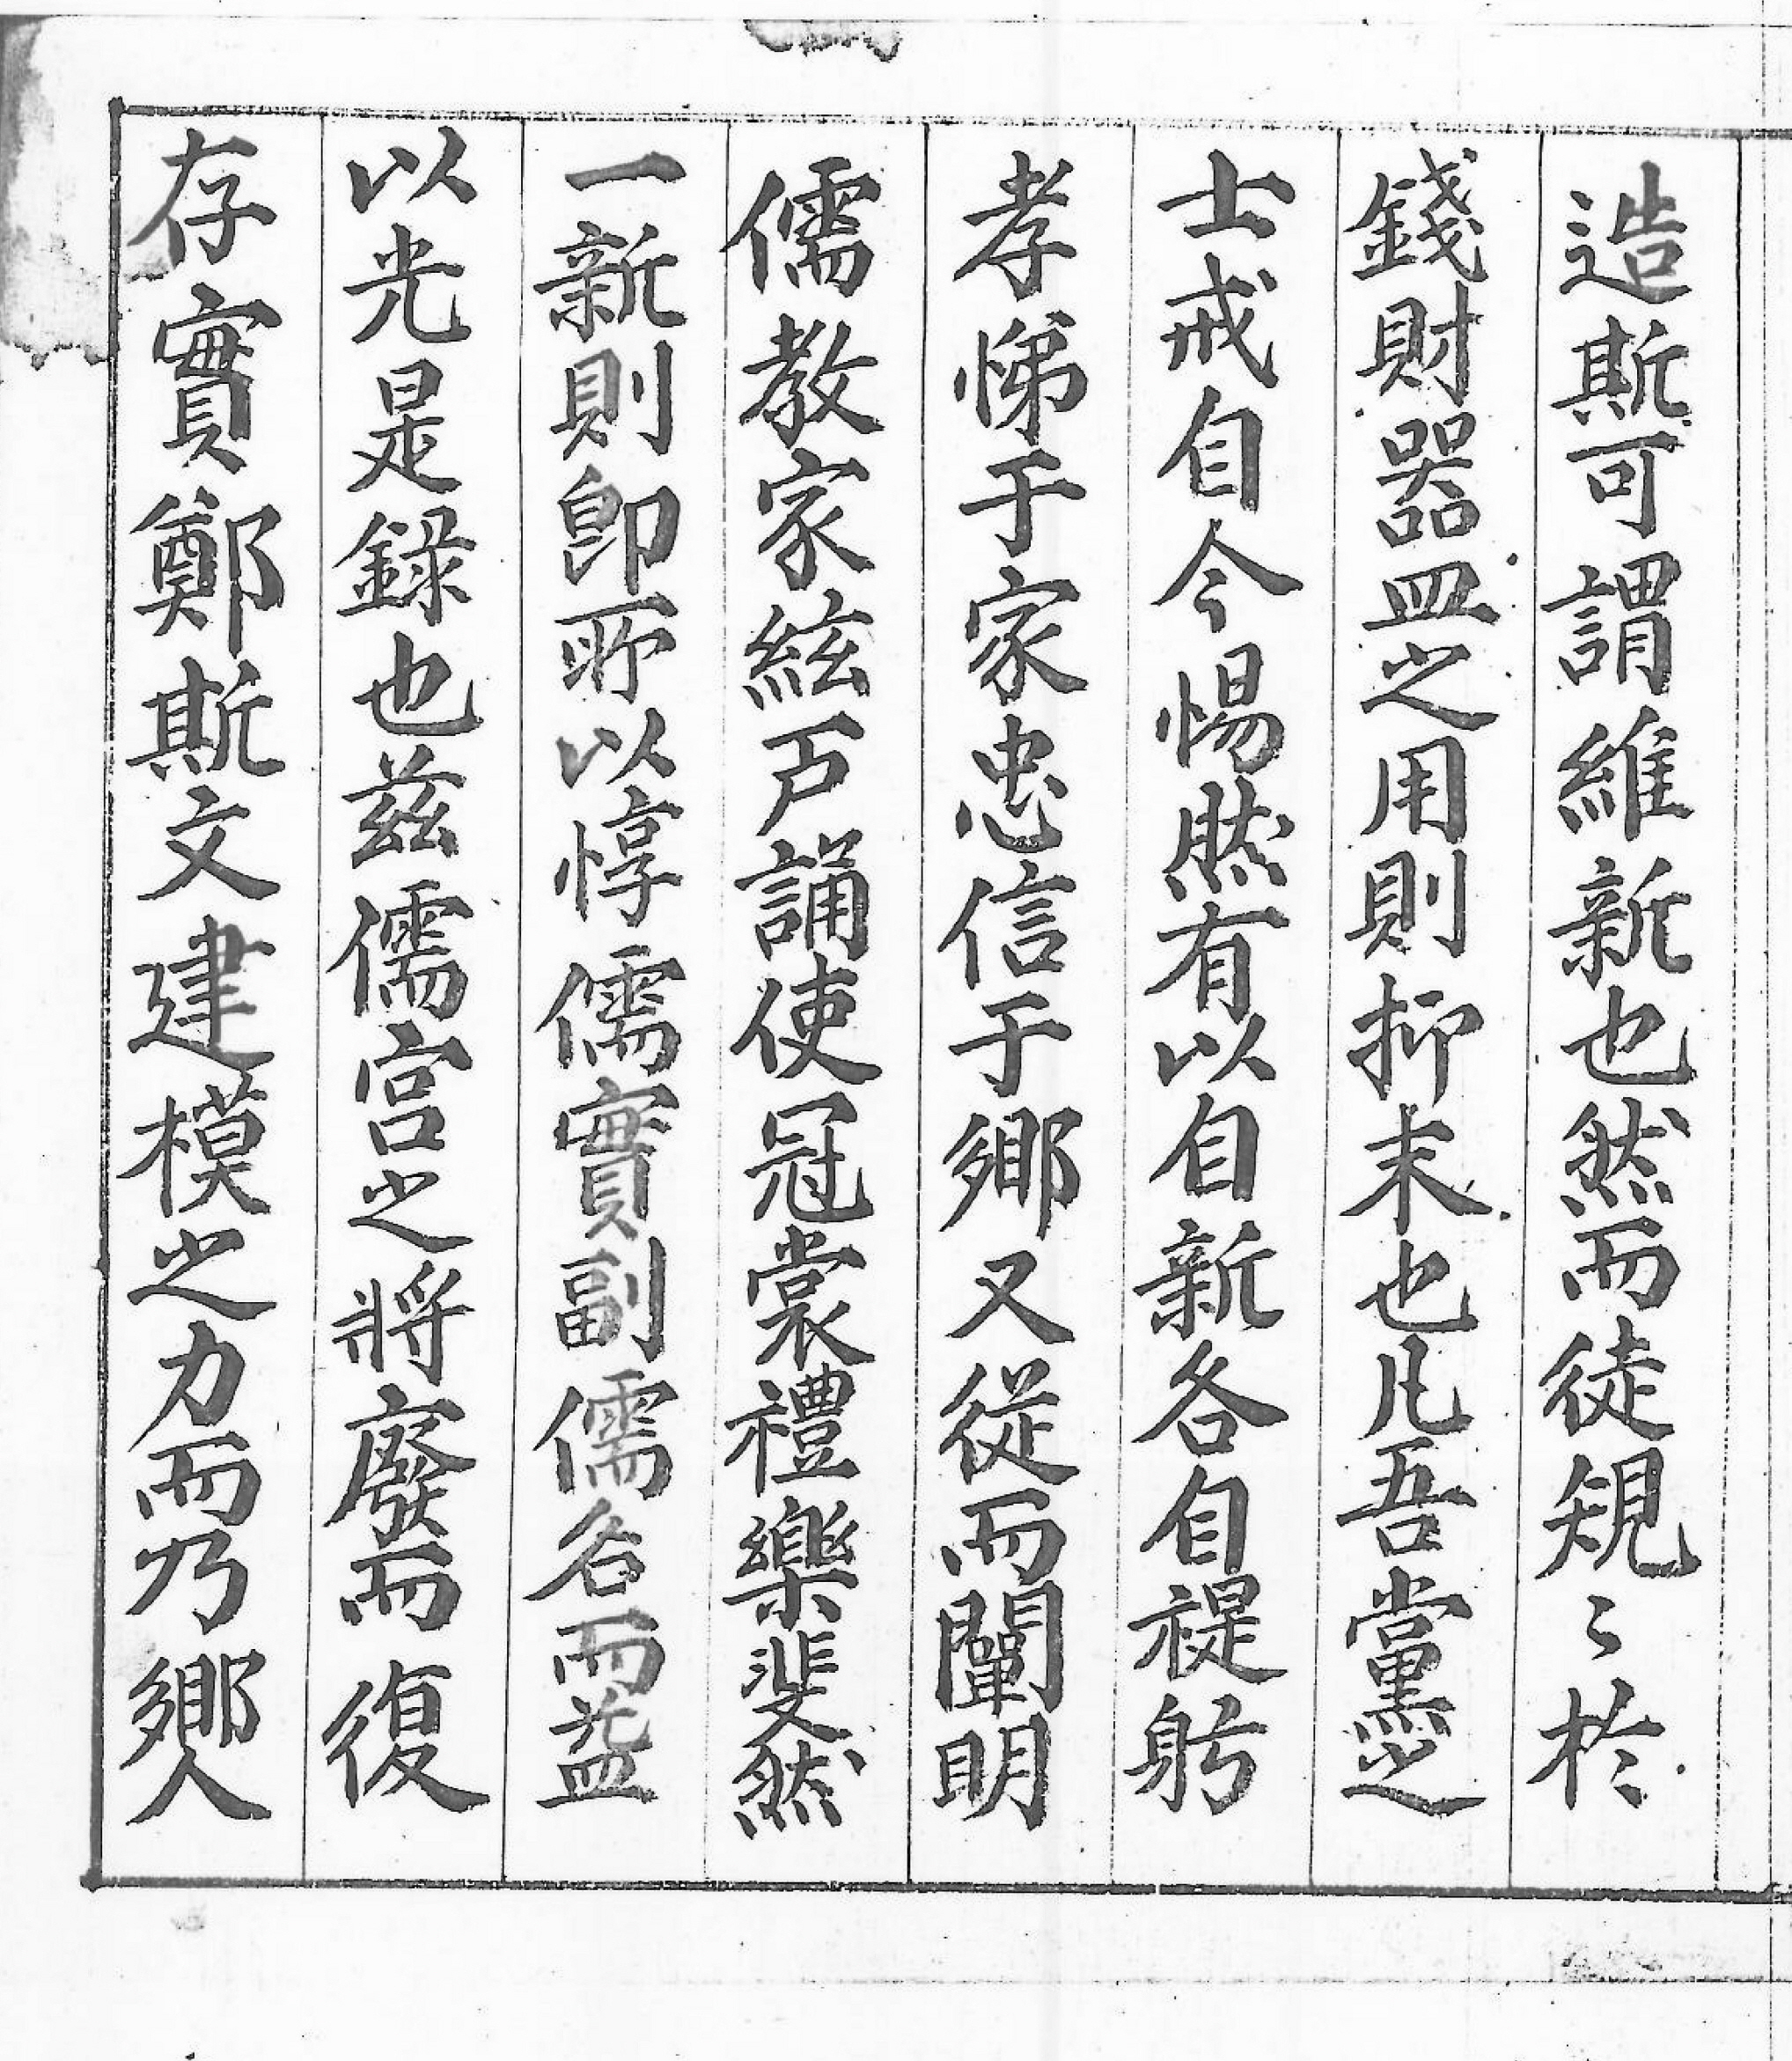 造斯可謂維新也然而徒規〻於
錢財器皿之用則抑末也凡吾黨之
士戒自今惕然有以自新各自禔躬
孝悌于家忠信于鄉又從而闡明
儒教家絃戶誦使冠裳禮樂斐然
一新則卽所以惇儒實副儒名而益
以光是錄也茲儒宮之將廢而復
存實鄭斯文建模之力而乃鄉人